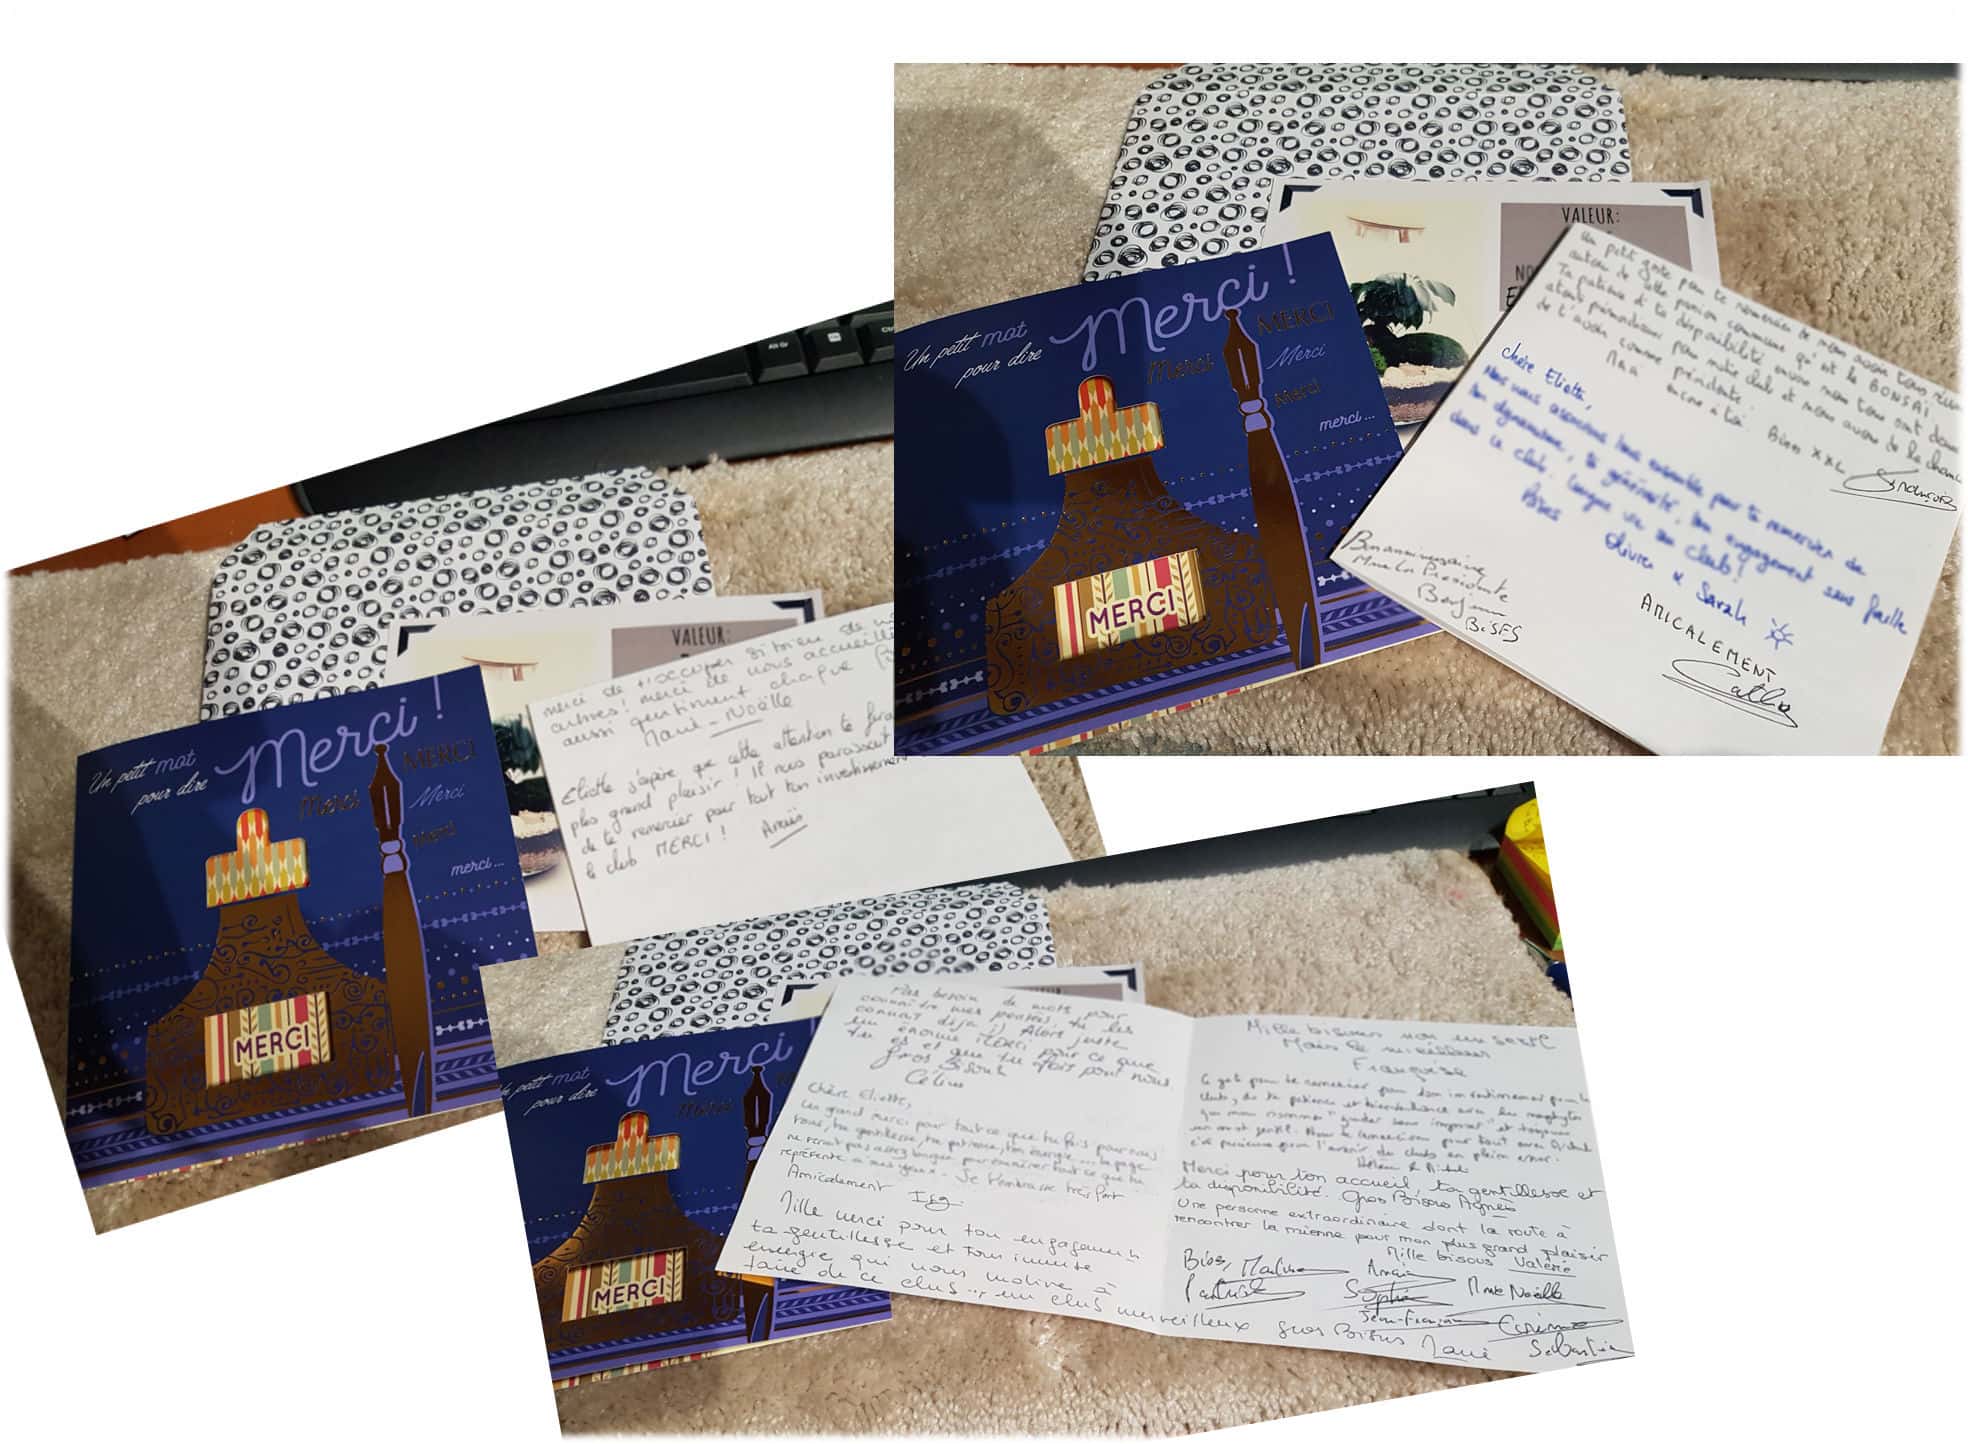 Un petit mot
pour dire
Merci !
MERCI
Merci
Merci
Merci
merci...
MERCI
VALEUR:
NO
Un petit geste pour te remercier de nous avoir tous
autour de cette passion commune qu'est le BONSAI.
Ta patience et ta disponibilité envers nous tous sont
atout pour notre club et nous avons de la chance
de t'avoir comme présidente.
encore à toi Bises XXL
Chère Eliotte,
Nous nous associons tous ensemble pour te remercier de
ton dynamisme, ta générosité, ton engagement sans faille
dans ce club. Longue vie au club!
Bises Olivier & Sarah
Bon anniversaire
Mme la Présidente
Benjamin
BISES
AMICALEMENT
Un petit mot
pour dire
Merci !
MERCI
Merci
Merci
Merci
merci...
MERCI
VALEUR:
merci de t'occuper si bien de
autres! merci de nous accueillir
aussi gentiment chaque
Marie-Noëlle
Eliotte j'espère que cette attention te fera
plus grand plaisir ! Il nous paraissait
de te remercier pour tout ton investissement
le club MERCI !
Anaïs
Un petit mot
pour dire
Merci
Merci
MERCI
Pas besoin de mots pour
connaître mes pensées tu les
connais déjà :) Alors juste
un énorme MERCI pour ce que
tu es et que tu fais pour nous.
Gros Bisous
Céline
Chère Eliotte,
Un grand merci pour tout ce que tu fais pour nous
tous, ta gentillesse, ta patience, ton énergie... la page
ne serait pas assez longue pour énumérer tout ce que tu
représente à mes yeux. Je t'embrasse très fort
Amicalement
Mille merci pour ton engagement
ta gentillesse et ton immense
énergie qui nous motive à
faire de ce club... un club merveilleux Gros Bisous
Mille bisous non un seul
Mais le meilleur
Françoise
Ce geste pour te remercier pour ton investissement pour le
club, de ta patience et bienveillance avec les néophytes
que nous sommes "guider sans imposer" et toujours
un mot gentil. Nous te remercions pour tout
pour l'avenir du club en plein essor.
Hélène &
Merci pour ton accueil ta gentillesse et
ta disponibilité. Gros Bisous Agnès
Une personne extraordinaire dont la route à
rencontrer la mienne pour mon plus grand plaisir
Mille bisous Valérie
Bises, Martine Anaïs
Patrick Sophie Marie Noëlle
Jean-François Corinne
Sébastien